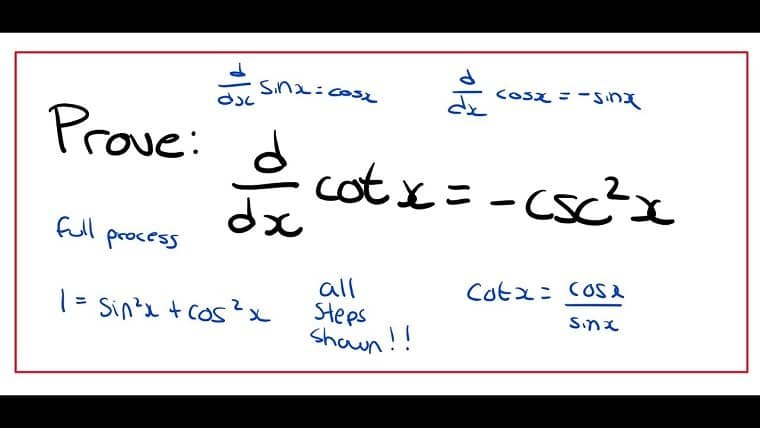 d/dx sinx = cosx
d/dx cosx = -sinx
Prove:
d/dx cotx = -csc²x
Full process
1 = sin²x + cos²x
all
steps
shown!!
cotx = cosx/sinx